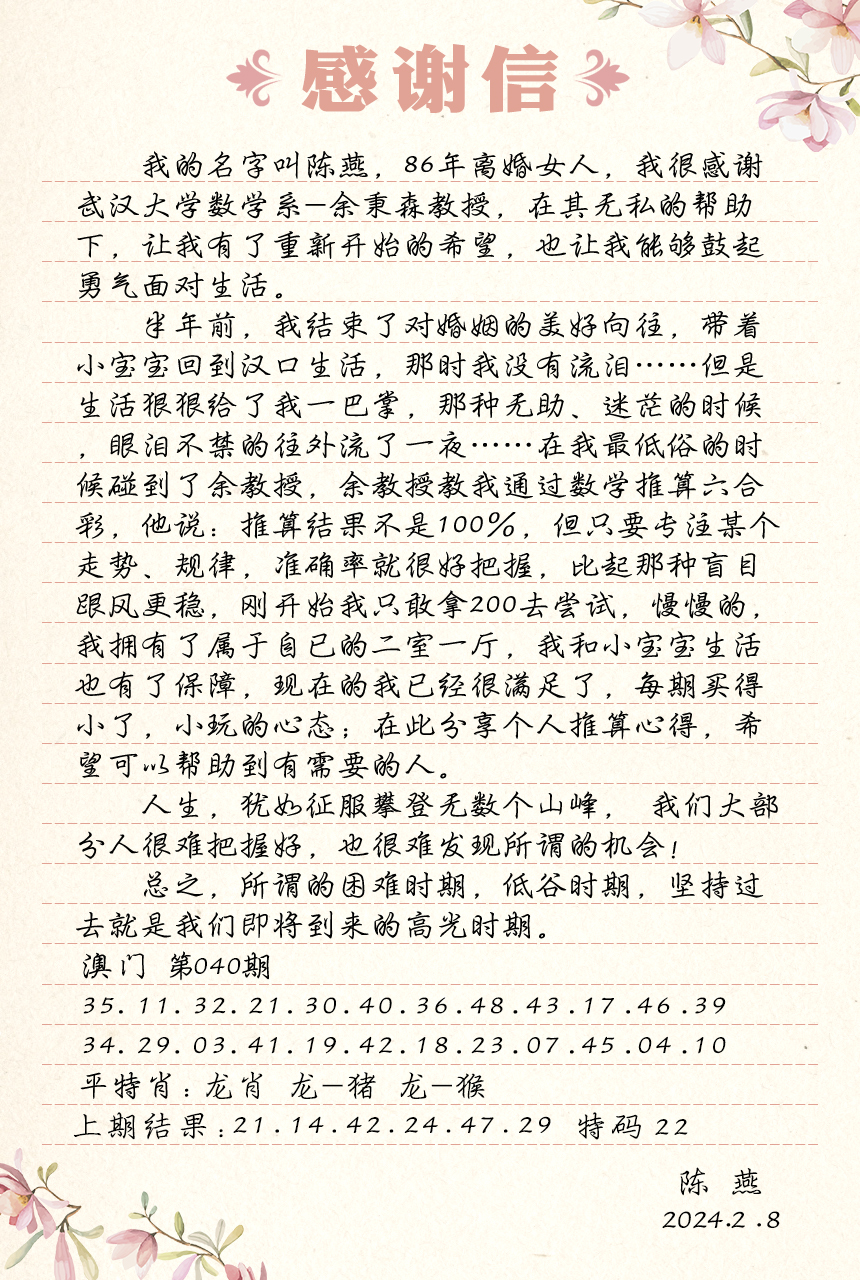 感谢信
我的名字叫陈燕，86年离婚女人，我很感谢
武汉大学数学系—余秉森教授，在其无私的帮助
下，让我有了重新开始的希望，也让我能够鼓起
勇气面对生活。
半年前，我结束了对婚姻的美好向往，带着
小宝宝回到汉口生活，那时我没有流泪……但是
生活狠狠给了我一巴掌，那种无助、迷茫的时候
，眼泪不禁的往外流了一夜……在我最低俗的时
候碰到了余教授，余教授教我通过数学推算六合
彩，他说：推算结果不是100%，但只要专注某个
走势、规律，准确率就很好把握，比起那种盲目
跟风更稳，刚开始我只敢拿200去尝试，慢慢的，
我拥有了属于自已的二室一厅，我和小宝宝生活
也有了保障，现在的我已经很满足了，每期买得
小了，小玩的心态；在此分享个人推算心得，希
望可以帮助到有需要的人。
人生，犹如征服攀登无数个山峰， 我们大部
分人很难把握好，也很难发现所谓的机会！
总之，所谓的困难时期，低谷时期，坚持过
去就是我们即将到来的高光时期。
澳门 第040期
35.11.32.21.30.40.36.48.43.17.46.39
34.29.03.41.19.42.18.23.07.45.04.10
平特肖：龙肖 龙—猪 龙—猴
上期结果：21.14.42.24.47.29 特码 22
陈 燕
2024.2.8